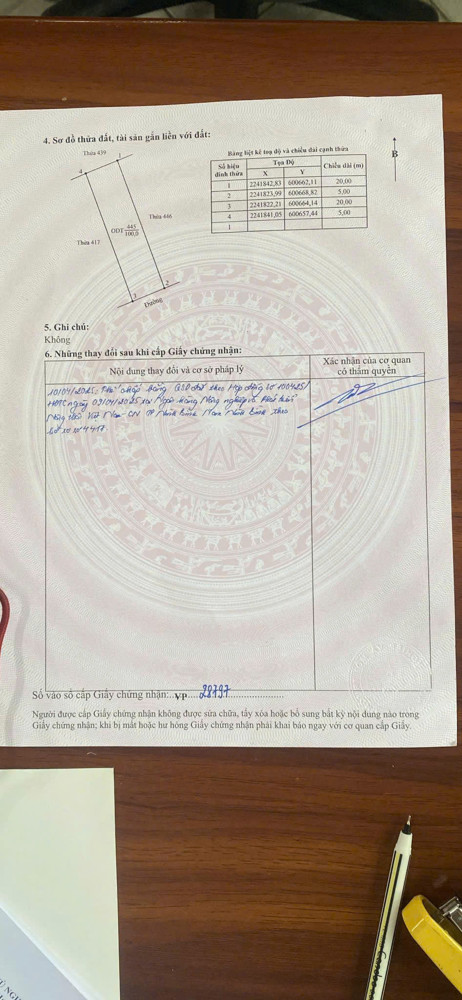 4. Sơ đồ thửa đất, tài sản gắn liền với đất:
Thửa 439
1
4
B
Thửa 417
ODT 445/100,0
Thửa 446
3
2
Đường
Bảng liệt kê toạ độ và chiều dài cạnh thửa
Số hiệu đỉnh thửa | Tọa Độ | Chiều dài (m)
X | Y
1 | 2241842,83 | 600662,11 | 20,00
2 | 2241823,99 | 600668,82 | 5,00
3 | 2241822,21 | 600664,14 | 20,00
4 | 2241841,05 | 600657,44 | 5,00
1
5. Ghi chú:
Không
6. Những thay đổi sau khi cấp Giấy chứng nhận:
Nội dung thay đổi và cơ sở pháp lý | Xác nhận của cơ quan có thẩm quyền
10/04/2025, Thế chấp bằng QSD đất theo Hợp đồng số 100425/
HĐTC ngày 09/04/2025 tại Ngân hàng Nông nghiệp và Phát triển
Nông thôn Việt Nam - CN TP Ninh Bình Nam Ninh Bình theo
Số vào sổ cấp Giấy chứng nhận: VP 28797
Người được cấp Giấy chứng nhận không được sửa chữa, tẩy xóa hoặc bổ sung bất kỳ nội dung nào trong
Giấy chứng nhận; khi bị mất hoặc hư hỏng Giấy chứng nhận phải khai báo ngay với cơ quan cấp Giấy.